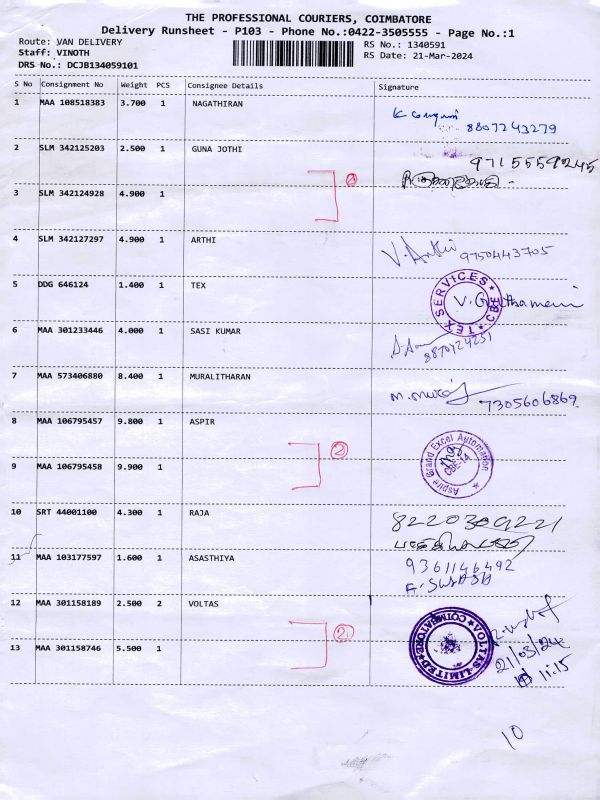 THE PROFESSIONAL COURIERS, COIMBATORE
Delivery Runsheet - P103 - Phone No.:0422-3505555 - Page No.:1
Route: VAN DELIVERY
RS No.: 1340591
Staff: VINOTH
RS Date: 21-Mar-2024
DRS No.: DCJB134059101
S No Consignment No Weight PCS Consignee Details Signature
1 MAA 108518383 3.700 1 NAGATHIRAN
8807243279
2 SLM 342125203 2.500 1 GUNA JOTHI 9715559245
3 SLM 342124928 4.900 1
4 SLM 342127297 4.900 1 ARTHI V. Arthi 9750443705
5 DDG 646124 1.400 1 TEX TEX SERVICES CBE
6 MAA 301233446 4.000 1 SASI KUMAR
8870724251
7 MAA 573406880 8.400 1 MURALITHARAN
7305606869
8 MAA 106795457 9.800 1 ASPIR
Aspire Grand Excel Automation CBE-14
2
9 MAA 106795458 9.900 1
10 SRT 44001100 4.300 1 RAJA 8220309221
11 MAA 103177597 1.600 1 ASASTHIYA 9361146492
12 MAA 301158189 2.500 2 VOLTAS
VOLTAS LIMITED COIMBATORE
2
21/03/24
11:15
13 MAA 301158746 5.500 1
10